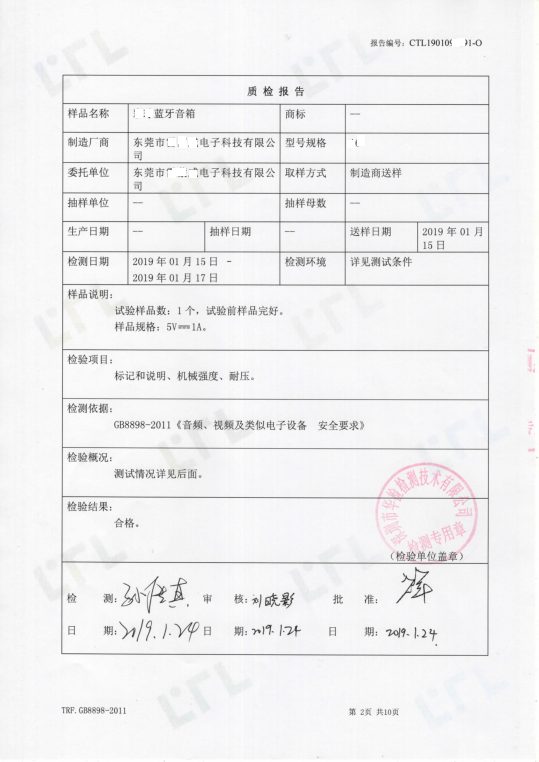 报告编号: CTL19010991-O
质 检 报 告
样品名称 蓝牙音箱 商标 --
制造厂商 东莞市 电子科技有限公司 型号规格
委托单位 东莞市 电子科技有限公司 取样方式 制造商送样
抽样单位 -- 抽样母数 --
生产日期 -- 抽样日期 -- 送样日期 2019 年 01 月 15 日
检测日期 2019 年 01 月 15 日 - 2019 年 01 月 17 日 检测环境 详见测试条件
样品说明:
试验样品数: 1 个, 试验前样品完好。
样品规格: 5V⎓1A。
检验项目:
标记和说明、机械强度、耐压。
检测依据:
GB8898-2011《音频、视频及类似电子设备 安全要求》
检验概况:
测试情况详见后面。
检验结果:
合格。
深圳市华检检测技术有限公司
检测专用章
(检验单位盖章)
检 测: 审 核: 刘晓影 批 准:
日 期: 2019.1.24 日 期: 2019.1.24 日 期: 2019.1.24
TRF.GB8898-2011
第 2页 共10页
CTL